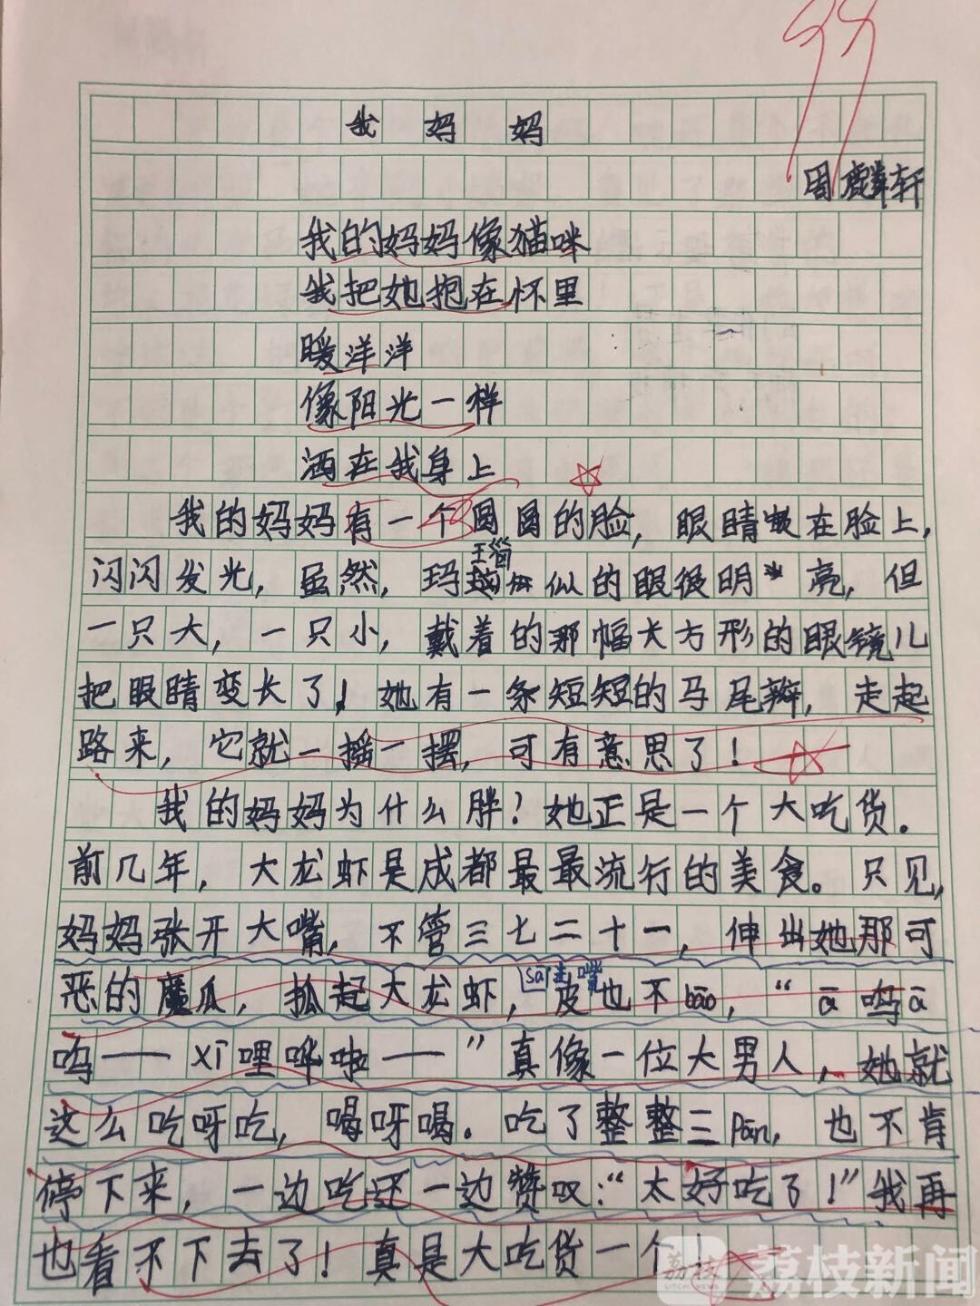 99
我妈妈
周麟轩
我的妈妈像猫咪
我把她抱在怀里
暖洋洋
像阳光一样
洒在我身上
我的妈妈有一个圆圆的脸,眼睛嵌在脸上,
王 瑙
闪闪发光,虽然,玛 似的眼很明亮,但
一只大,一只小,戴着的那幅大方形的眼镜儿
把眼睛变长了!她有一条短短的马尾辫,走起
路来,它就一摇一摆,可有意思了!
我的妈妈为什么胖?她正是一个大吃货。
前几年,大龙虾是成都最最流行的美食。只见,
妈妈张开大嘴,不管三七二十一,伸出她那可
sāi 嘴
恶的魔瓜,抓起大龙虾,皮也不bāo,“ā呜ā
呜——xī哩哗啦——”真像一位大男人,她就
这么吃呀吃,喝呀喝。吃了整整三Pán,也不肯
停下来,一边吃还一边赞叹:“太好吃了!”我再
也看不下去了!真是大吃货一个!
荔枝新闻